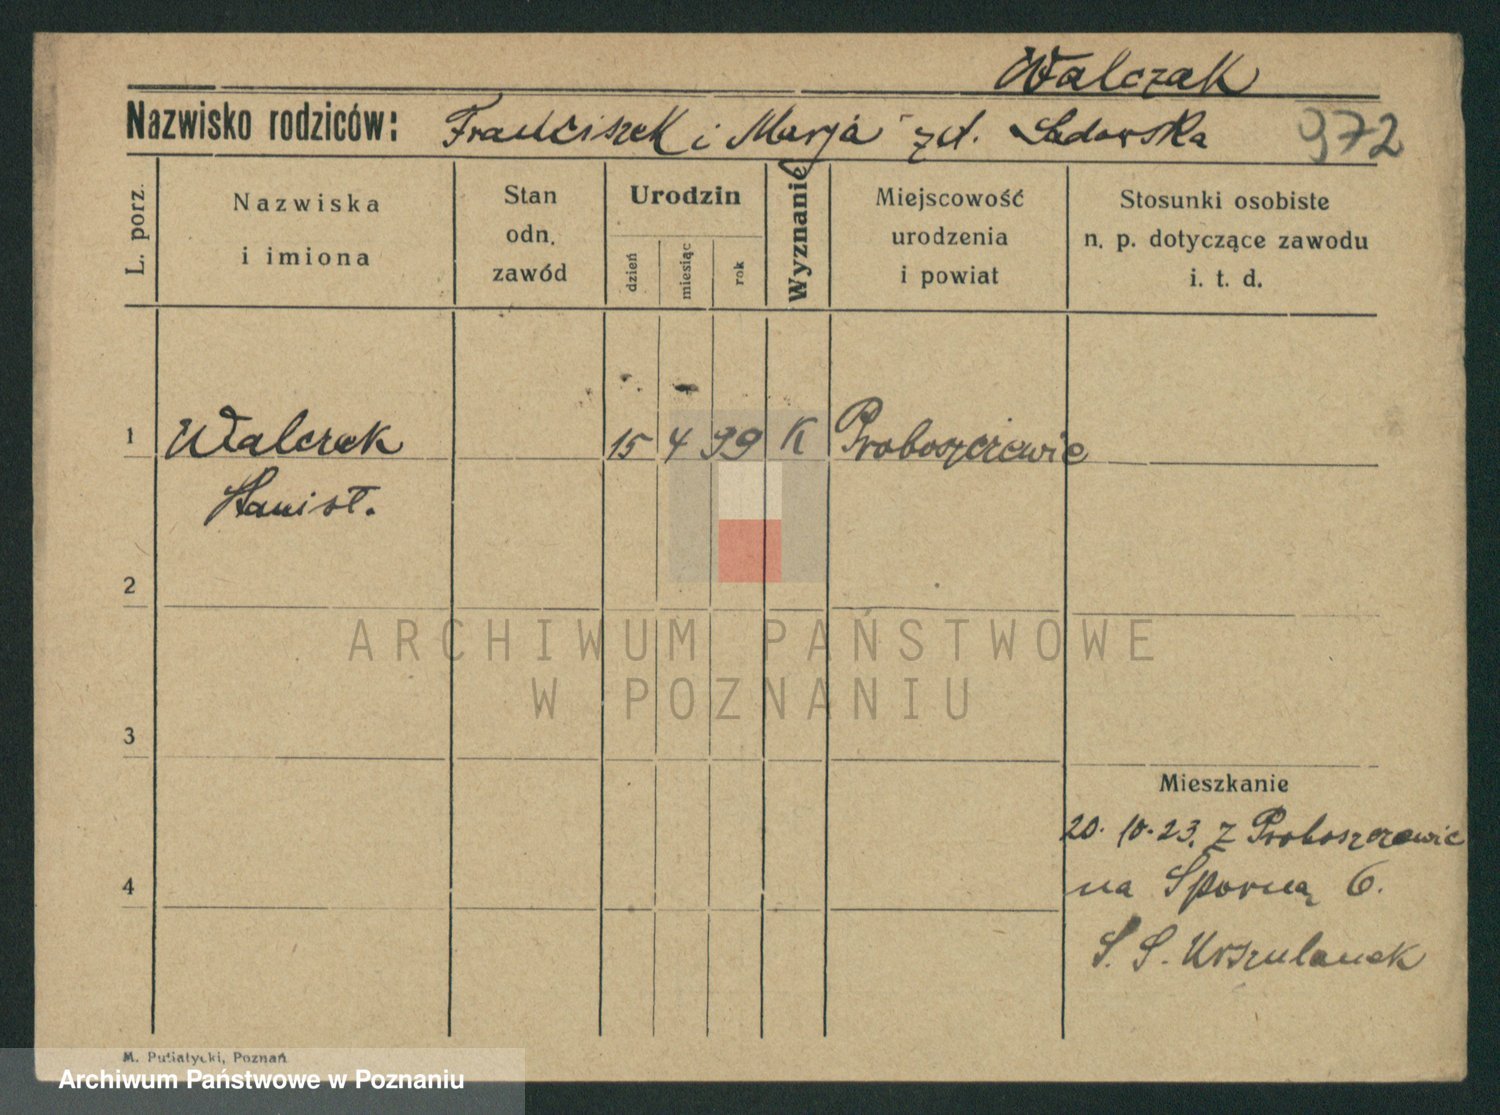 Walczak
Nazwisko rodziców: Franciszek i Marja zd. Sadowska 972
L. porz.
Nazwiska
i imiona
Stan
odn.
zawód
Urodzin
dzień
miesiąc
rok
Wyznanie
Miejscowość
urodzenia
i powiat
Stosunki osobiste
n. p. dotyczące zawodu
i. t. d.
1 Walczak 15 4 99 K Proboszczewic
Stanisł.
2
ARCHIWUM PAŃSTWOWE
W POZNANIU
3
Mieszkanie
20. 10. 23. z Proboszczewic
4 na Sporną 6.
S. S. Urszulanek
M. Putiatycki, Poznań
Archiwum Państwowe w Poznaniu